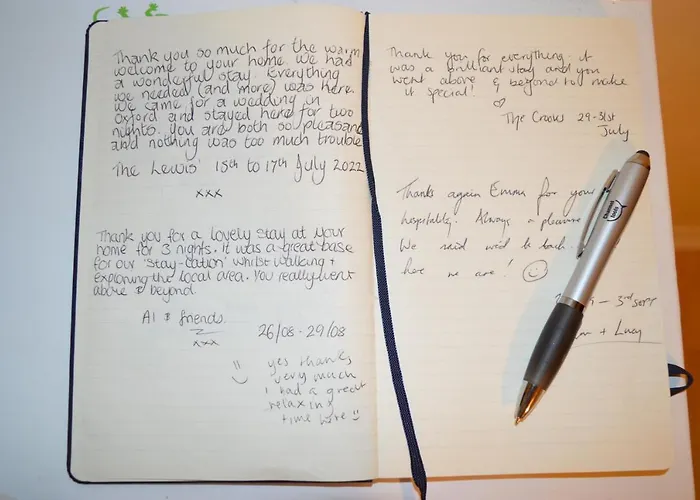 Thank you so much for the warm
welcome to your home. We had
a wonderful stay. Everything
we needed (and more) was here.
We came for a wedding in
Oxford and stayed here for two
nights. You are both so pleasant
and nothing was too much trouble
The Lewis' 15th to 17th July 2022
xxx
Thank you for a lovely stay at your
home for 3 nights. It was a great base
for our 'stay-cation' whilst walking +
exploring the local area. You really went
above & beyond.
Al & friends.
xxx
26/08 - 29/08
yes thanks
very much
I had a great
relaxing
time here
Thank you for everything. it
was a brilliant stay and you
went above & beyond to make
it special!
The Crooks 29-31st
July
Thanks again Emma for your
hospitality. Always a pleasure
We said we'd be back
here we are!
– 3rd sept
+ Lucy